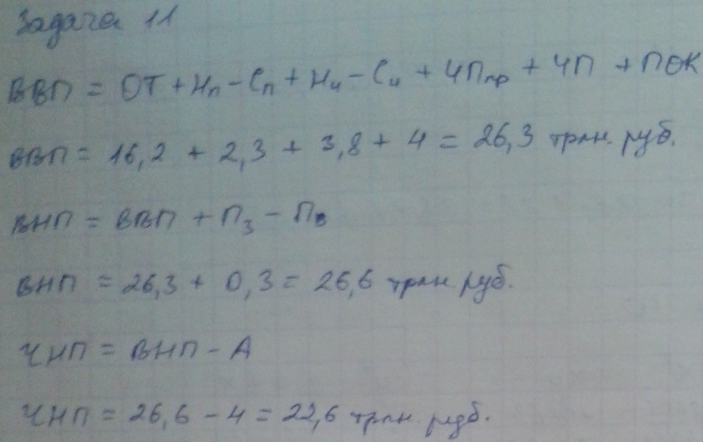 Задача 11
ВВП = ОТ + Нп - Сп + Ни - Си + ЧПпр + ЧП + ПОК
ВВП = 16,2 + 2,3 + 3,8 + 4 = 26,3 трлн. руб.
ВНП = ВВП + Пз - Пв
ВНП = 26,3 + 0,3 = 26,6 трлн. руб.
ЧНП = ВНП - А
ЧНП = 26,6 - 4 = 22,6 трлн. руб.